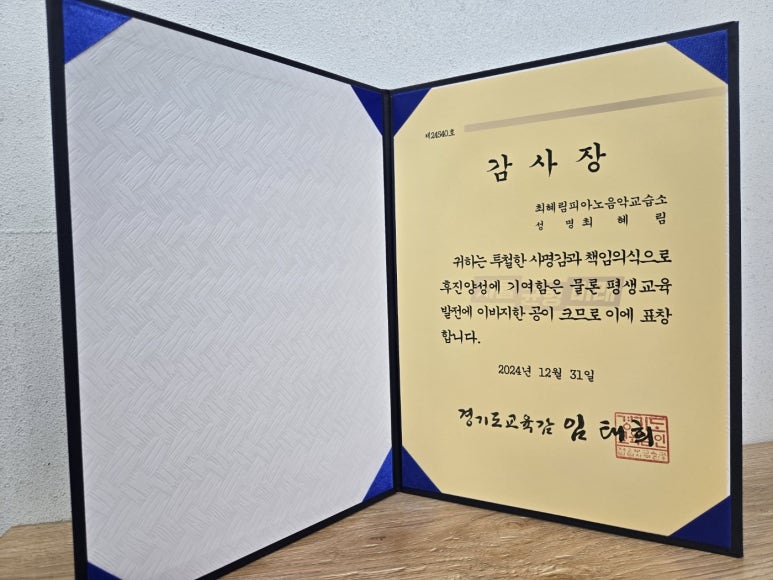 제24540호
감사장
최혜림피아노음악교습소
성 명 최 혜 림
귀하는 투철한 사명감과 책임의식으로
후진양성에 기여함은 물론 평생교육
발전에 이바지한 공이 크므로 이에 표창
합니다.
2024년 12월 31일
경기도교육감 임태희